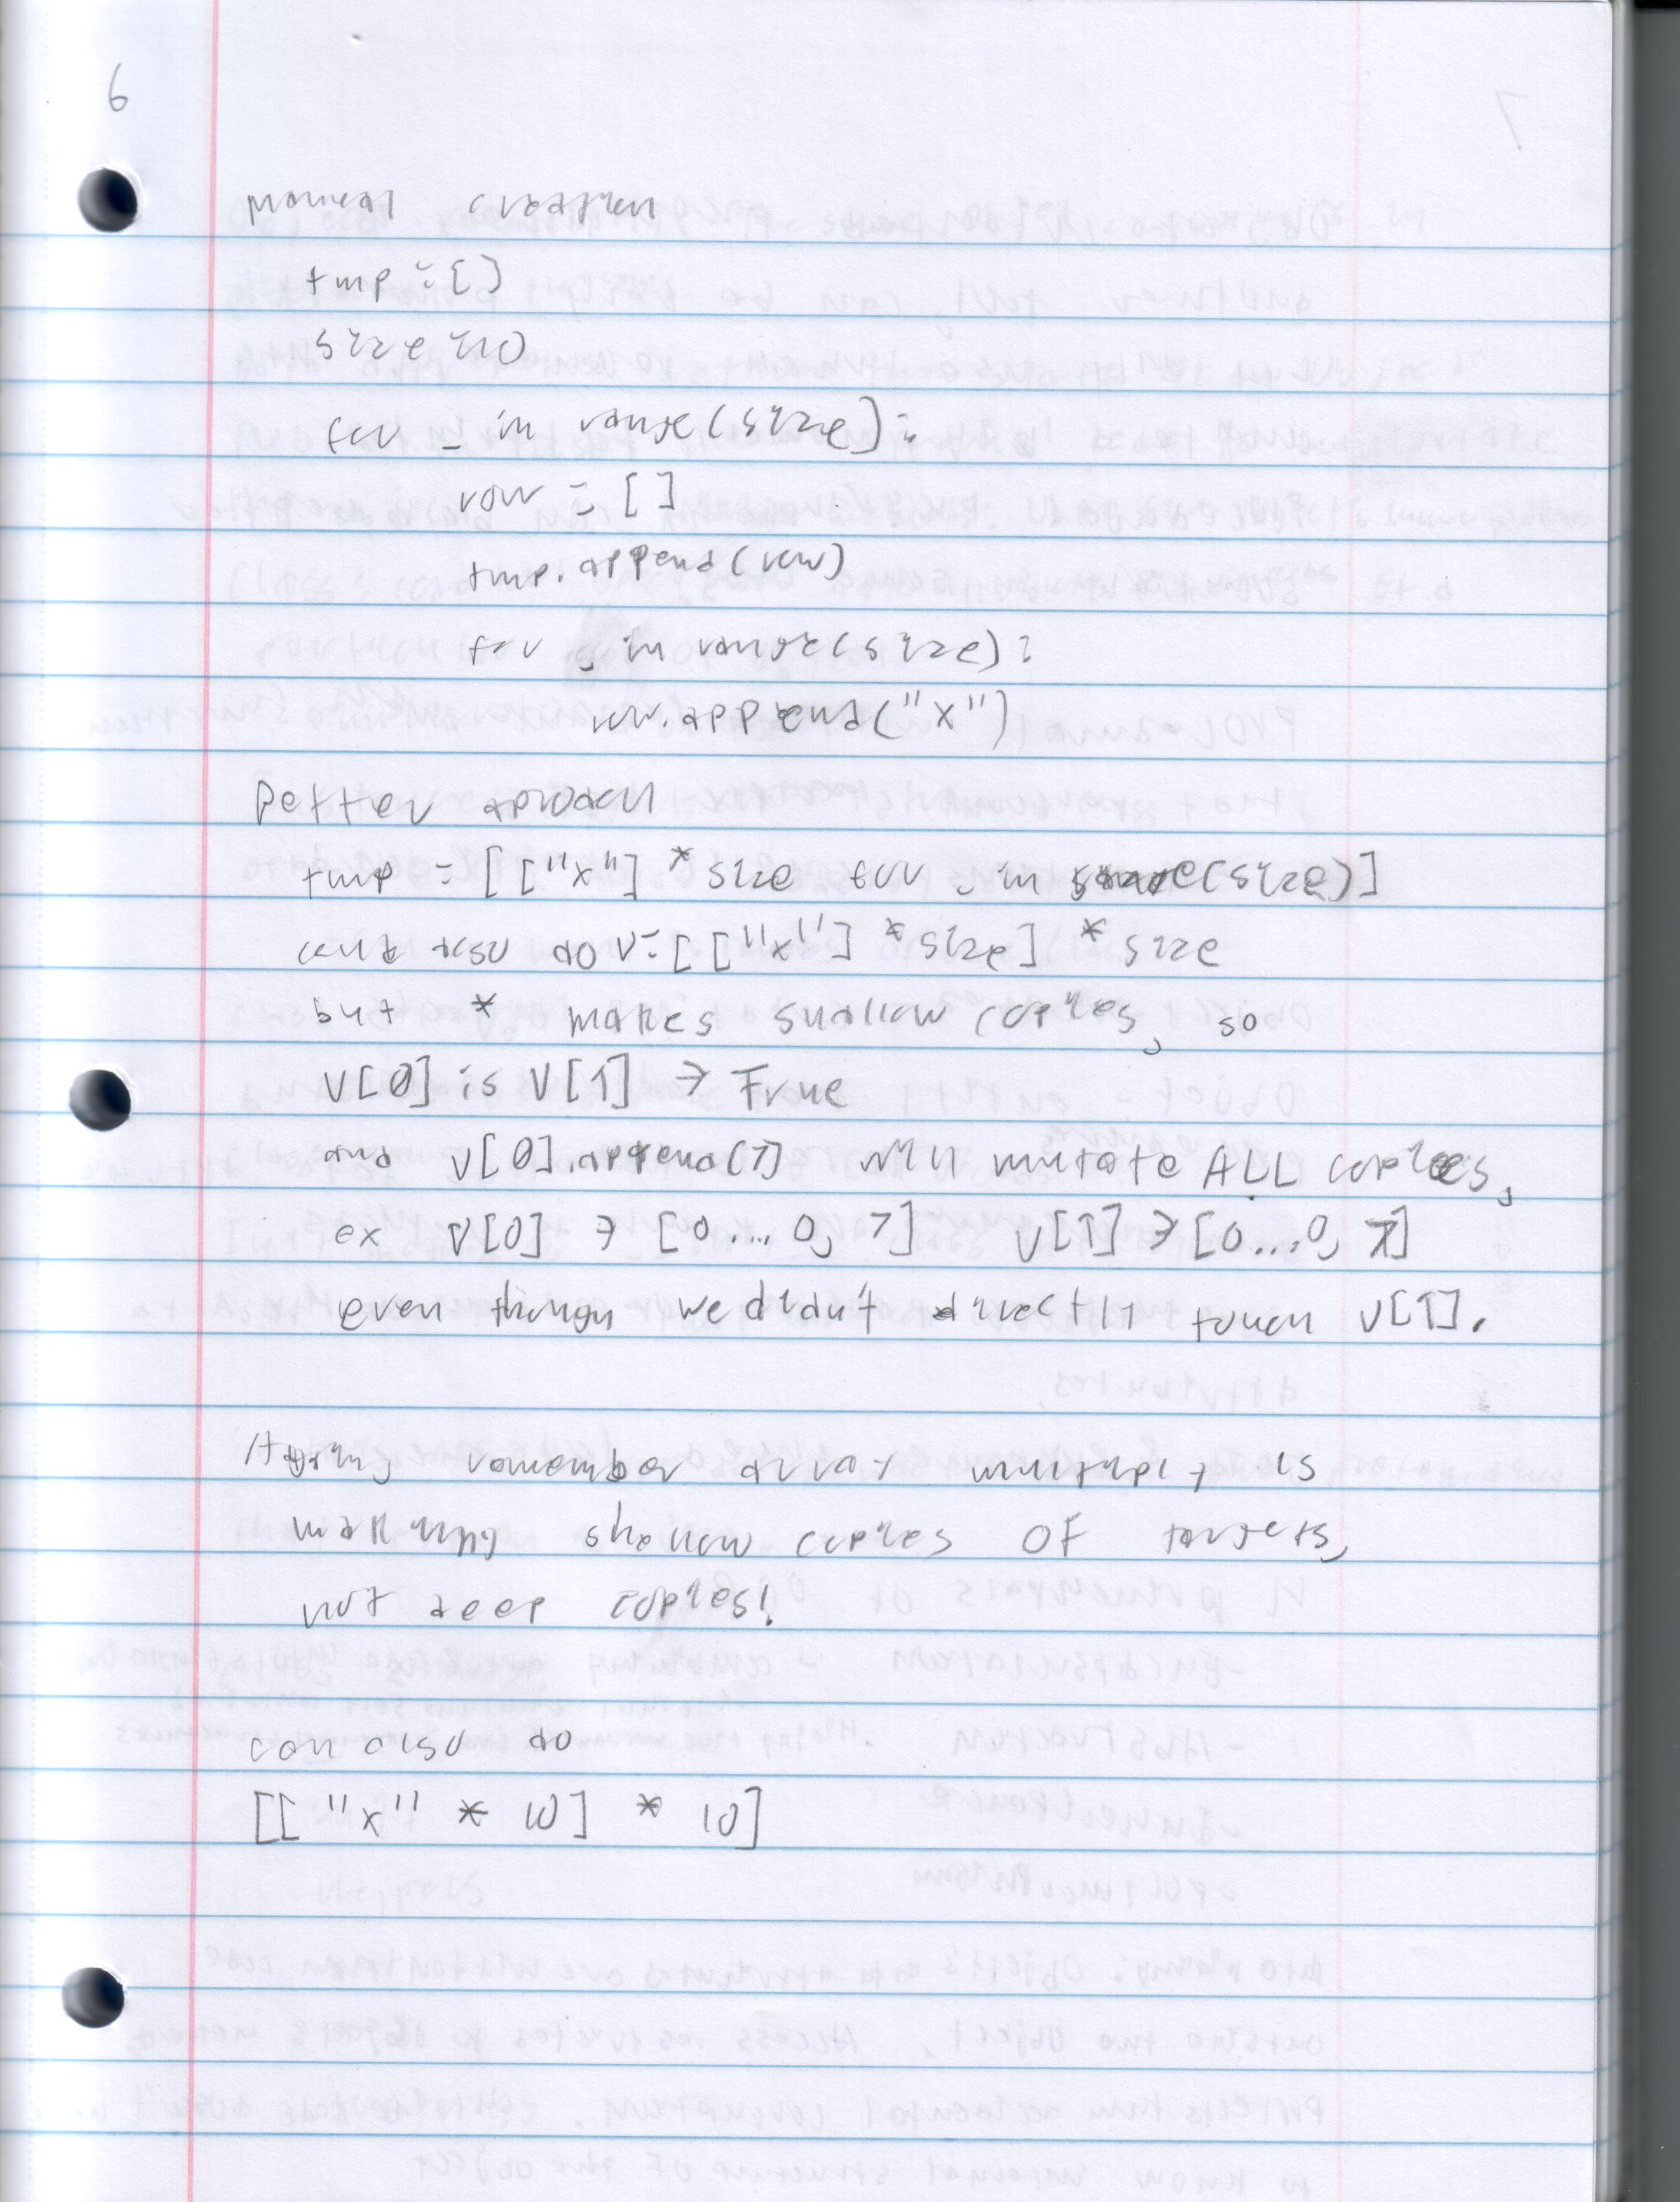 6
manual creation
tmp = []
size = 10
for _ in range(size):
row = []
tmp.append(row)
for _ in range(size):
row.append("x")
Better aproach
tmp = [["x"] * size for _ in range(size)]
could also do V = [["x"] * size] * size
but * makes shallow copies, so
V[0] is V[1] → True
and V[0].append(7) will mutate ALL copies,
ex V[0] → [0... 0, 7] V[1] → [0...0, 7]
even though we didn't directly touch V[1].
remember array multiply is
making shallow copies OF targets,
not deep copies!
can also do
[["x" * 10] * 10]